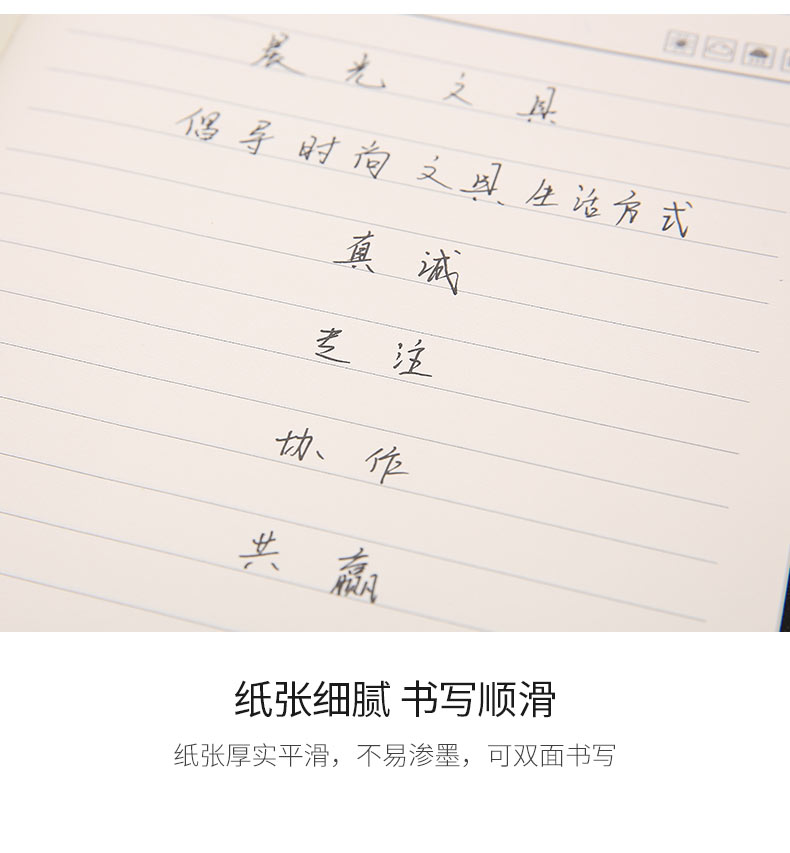 晨光文具
倡导时尚文具生活方式
真诚
专注
协作
共赢
纸张细腻 书写顺滑
纸张厚实平滑，不易渗墨，可双面书写